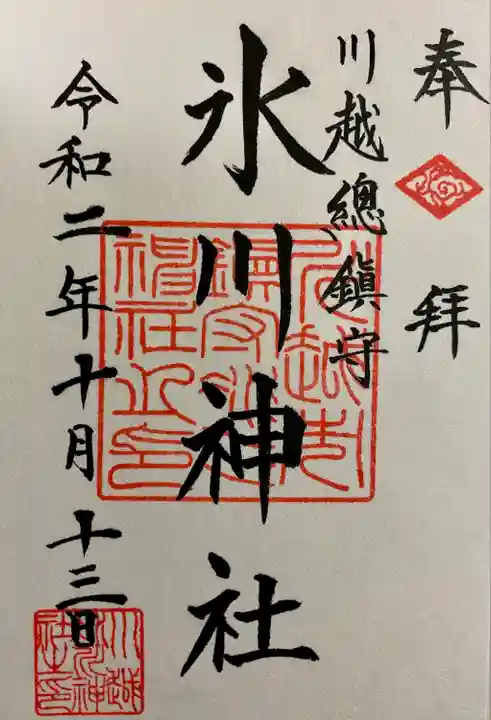 奉拜
川越總鎮守
氷川神社
令和二年十月十三日